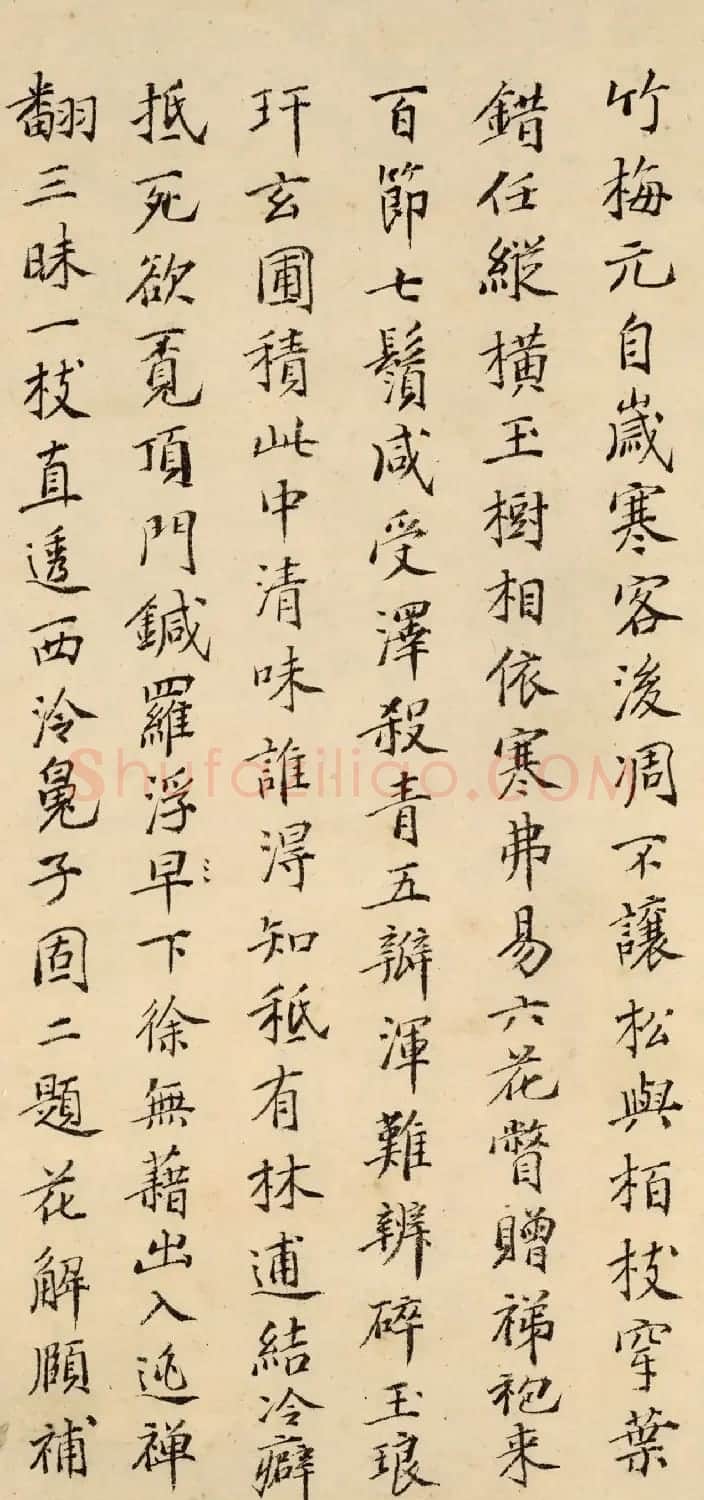 竹梅元自歲寒客後凋不讓松與栢枝穿葉
錯任縱橫玉樹相依寒弗易六花瞥贈祶袍来
百節七鬚咸受澤殺青五瓣渾難辨碎玉琅
玕玄圃積此中清味誰得知秪有林逋結冷癖
抵死欲覔頂門鍼羅浮早下徐無藉出入逃禅
翻三昧一枝直透西泠子固二題花解頤補
Shufaziliao.COM